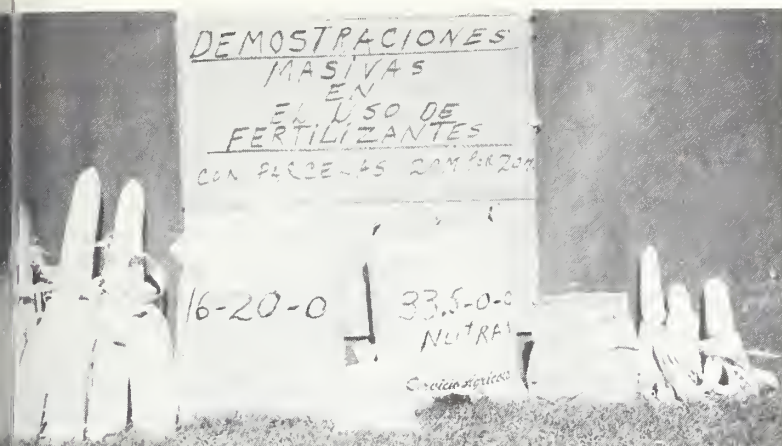 DEMOSTRACIONES
MASIVAS
EN
EL USO DE
FERTILIZANTES
CON PARCELAS 20M POR 20M
16-20-0
33.5-0-0
NUTRA